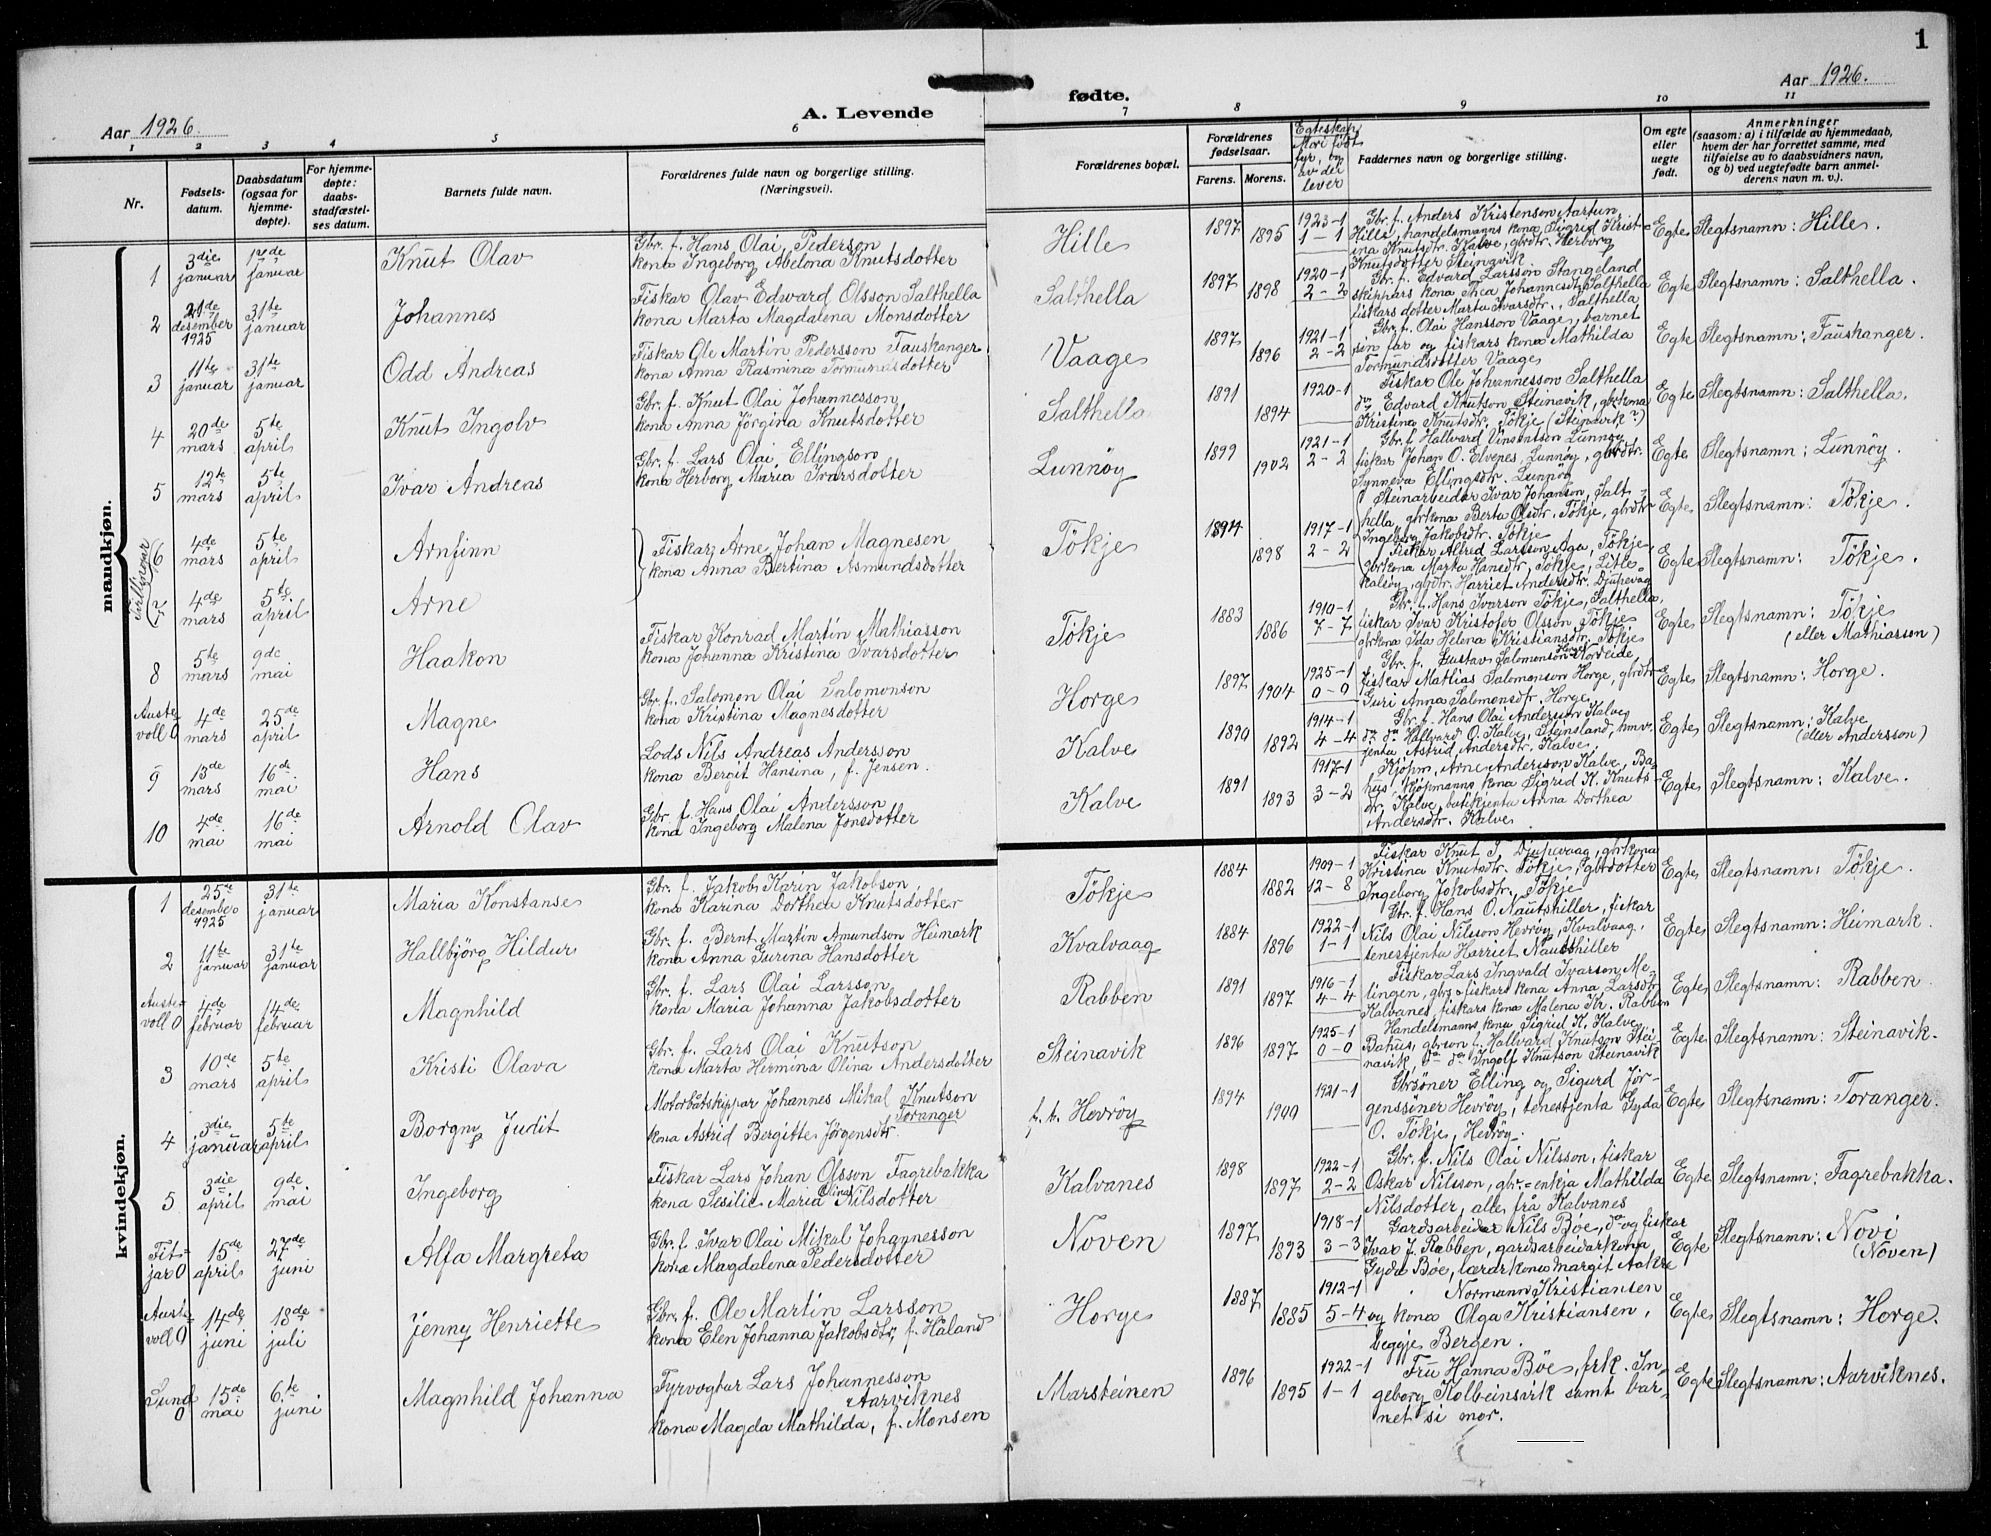 1
Aar 1926.
A. Levende
fødte.
Aar 1926.
1 2 3 4 5 6 7 8 9 10 11
Nr.
Fødsels-
datum.
Daabsdatum
(ogsaa for
hjemme-
døpte).
For hjemme-
døpte:
daabs-
stadfæstel-
ses datum.
Barnets fulde navn.
Forældrenes fulde navn og borgerlige stilling.
(Næringsvei).
Forældrenes bopæl.
Forældrenes
fødselsaar.
Farens. Morens.
Egteskap
Mori født
fyr, og
av dei
lever
Faddernes navn og borgerlige stilling.
Om egte
eller
uegte
født.
Anmerkninger
(saasom: a) i tilfælde av hjemmedaab,
hvem der har forrettet samme, med
tilføielse av to daabsvidners navn,
og b) ved uegtefødte barn anmel-
derens navn m. v.).
mandkjøn.
1 3die januar 17de januar Knut Olav
Gbr. f. Hans Olai Pederson
kona Ingeborg Abelona Knutsdotter
Hille 1897 1895 1923-1 1-1
Gbr. f. Anders Kristenson Aartun
Hille, handelsmanns kona Sigrid Krist-
ina Knutsdtr. Kalve, gbrdtr. Herborg
Knutsdotter Steinavik
Egte Slegtsnamn: Hille.
2 21de desember 1925 31te januar Johannes
Fiskar Olav Edward Olsson Salthella
kona Marta Magdalena Monsdotter
Salthella 1897 1898 1920-1 2-2
Gbr. f. Edvard Larsson Stangeland
skippars kona Thea Johannesdtr. Salthella
fiskars dotter Marta Ivarsdtr. Salthella
Egte Slegtsnamn: Salthella.
3 11te januar 31te januar Odd Andreas
Fiskar Ole Martin Pedersson Fauskanger
kona Anna Rasmina Tormundsdotter
Vaage 1897 1896 1921-1 2-2
Gbr. f. Olai Hansson Vaage, barnet
sin far og fiskars kona Mathilda
Tormundsdotter Vaage
Egte Slegtsnamn: Fauskanger.
4 20de mars 5te april Knut Ingolv
Gbr. f. Knut Olai Johannesson
kona Anna Jörgina Knutsdotter
Salthella 1891 1894 1920-1
Fiskar Ole Johannesson Salthella
do Edvard Knutson Steinavik, gbrkona
Kristina Knutsdtr. Tökje (Steinavik?)
Egte Slegtsnamn: Salthella.
5 12te mars 5te april Ivar Andreas
Gbr. f. Lars Olai Ellingson
kona Herborg Maria Ivarsdotter
Lunnöy 1899 1902 1921-1 2-2
Gbr. f. Hallvard Vinsentson Lunnöy
fiskar Johan O. Elvenes, Lunnöy, gbrdtr.
Synneva Ellingsdtr. Lunnöy
Egte Slegtsnamn: Lunnöy.
Tvillingar
6 4de mars 5te april Arnfinn
Fiskar Arne Johan Magnesen
kona Anna Bertina Asmundsdotter
Tökje 1894 1898 1917-1 2-2
Steinarbeidar Ivar Johanson, Salt-
hella, gbrkona Berta Olsdtr. Tökje, gbrdtr
Ingeborg Jakobsdtr. Tökje
Egte Slegtsnamn: Tökje.
7 4de mars 5te april Arne
Fiskar Alfred Larsson Aga, Tökje,
gbrkona Marta Hansdtr, Tökje, Litle
Kalsöy, gbrdtr. Harriet Andersdtr. Djupevag
Egte Slegtsnamn: Tökje.
8 5te mars 9de mai Haakon
Fiskar Konrad Martin Mathiasson
kona Johanna Kristina Ivarsdotter
Tökje 1883 1886 1910-1 7-7
Gbr. f. Hans Ivarson Tökje, Salthella,
fiskar Ivar Kristofer Olsson Tökje
gbrkona Ida Helena Kristiansdtr. Tökje
Egte Slegtsnamn: Tökje
(eller Mathiasson)
Auste
voll 0 4de mars 25de april Magne
Gbr. f. Salomon Olai Salomonson
kona Kristina Magnesdotter
Horge 1897 1904 1925-1 0-0
Gbr. f. Gustav Salomonson Horge Nordeide,
fiskar Mathias Salomonson Horge, gbrdtr
Guri Anna Salomonsdtr. Horge
Egte Slegtsnamn: Horge.
9 13de mars 16de mai Hans
Lods Nils Andreas Andersson
kona Bergit Hansina, f. Jensen.
Kalve 1890 1892 1914-1 4-4
Gbr. f. Hans Olai Anderson Kalve
do do Hallvard O. Kalve, Steinsland, hmv.
jenta Astrid Andersdtr. Kalve
Egte Slegtsnamn: Kalve
(eller Andersson)
10 4de mai 16de mai Arnold Olav
Gbr. f. Hans Olai Andersson
kona Ingeborg Malena Jonsdotter
Kalve 1891 1893 1917-1 3-2
Kjöpm. Arne Anderson Kalve, Ba-
hus, kjöpmanns kona Sigrid K. Knuts-
dtr. Kalve, butikjenta Anna Dorthea
Andersdtr. Kalve
Egte Slegtsnamn: Kalve.
kvindekjøn.
1 25te desember 1925 31te januar Maria Konstanse
Gbr. f. Jakob Karin Jakobson
kona Karina Dorthea Knutsdotter
Tökje 1884 1882 1909-1 12-8
Fiskar Knut J. Djupevaag, gbrkona
Kristina Knutsdtr. Tökje, gbrdotter
Ingeborg Jakobsdtr. Tökje
Egte Slegtsnamn: Tökje.
2 11te januar 31te januar Hallbjörg Hildur
Gbr. f. Bernt Martin Amundson Heimark
kona Anna Surina Hansdotter
Kvalvaag 1884 1896 1922-1 1-1
Gbr. f. Hans O. Nautshiller, fiskar
Nils Olai Nilsson Hevröy, Kvalvaag,
tenestjenta Harriet Nautshiller
Egte Slegtsnamn: Heimark.
Auste
voll 0 4de februar 14de februar Magnhild
Gbr. f. Lars Olai Larsson
kona Maria Johanna Jakobsdotter
Rabben 1891 1897 1916-1 4-4
Fiskar Lars Ingvald Ivarson, Me-
lingen, gbrg. fiskars kona Anna Larsdtr
Kalvanes, fiskars kona Malena Kr. Rabben
Egte Slegtsnamn: Rabben
3 10de mars 5te april Kristi Olava
Gbr. f. Lars Olai Knutson
kona Marta Hermina Olina Andersdotter
Steinavik 1896 1897 1925-1 0-0
Handelsmanns kona Sigrid K. Kalve,
Bahus, gbrson Hallvard Knutson Stei-
navik, do do Ingolf Knutson Steinavik
Egte Slegtsnamn: Steinavik.
4 3die januar 5te april Borgny Judit
Motorbåtskippar Johannes Mikal Knutson
Toranger
kona Astrid Bergitte Jörgensdtr.
f. t. Hevröy 1894 1900 1921-1
Gbrsöner Elling og Sigurd Jör-
genssöner Hevröy, tenestjenta Gyda
O. Tökje, Hevröy.
Egte Slegtsnamn: Toranger.
5 3die april 9de mai Ingeborg
Fiskar Lars Johan Olsson Fagrebakka
kona Sesilie Maria Olina Nilsdotter
Kalvanes 1898 1897 1922-1 2-2
Gbr. f. Nils Olai Nilsson, fiskar
Oskar Nilsson, gbr.-enkja Mathilda
Nilsdotter, alle frå Kalvanes
Egte Slegtsnamn: Fagrebakka.
Fit-
jar 0 15de april 27de juni Alfa Margreta
Gbr. f. Ivar Olai Mikal Johannesson
kona Magdalena Pedersdotter
Noven 1897 1893 1918-1 3-3
Gardsarbeidar Nils Böe, do og fiskar
Ivar J. Rabben, gardsarbeidarkona
Gyda Böe, lærarkona Margit Aakre
Egte Slegtsnamn: Novi
(Noven)
Auste
voll 0 14de juni 18de juli Jenny Henriette
Gbr. f. Ole Martin Larsson
kona Elen Johanna Jakobsdtr, f. Håland
Horge 1887 1885 1912-1 5-4
Normann Kristiansen
og kona Olga Kristiansen,
beggje Bergen.
Egte Slegtsnamn: Horge.
Sund
0 15de mai 6te juni Magnhild Johanna
Fyrvogtar Lars Johannesson
Aarviknes
kona Magda Mathilda, f. Monsen
Marsteinen 1896 1895 1922-1 1-1
Fru Hanna Böe, frk. In-
geborg Kolbeinsvik samt bar-
net si mor.
Egte Slegtsnamn: Aarviknes.